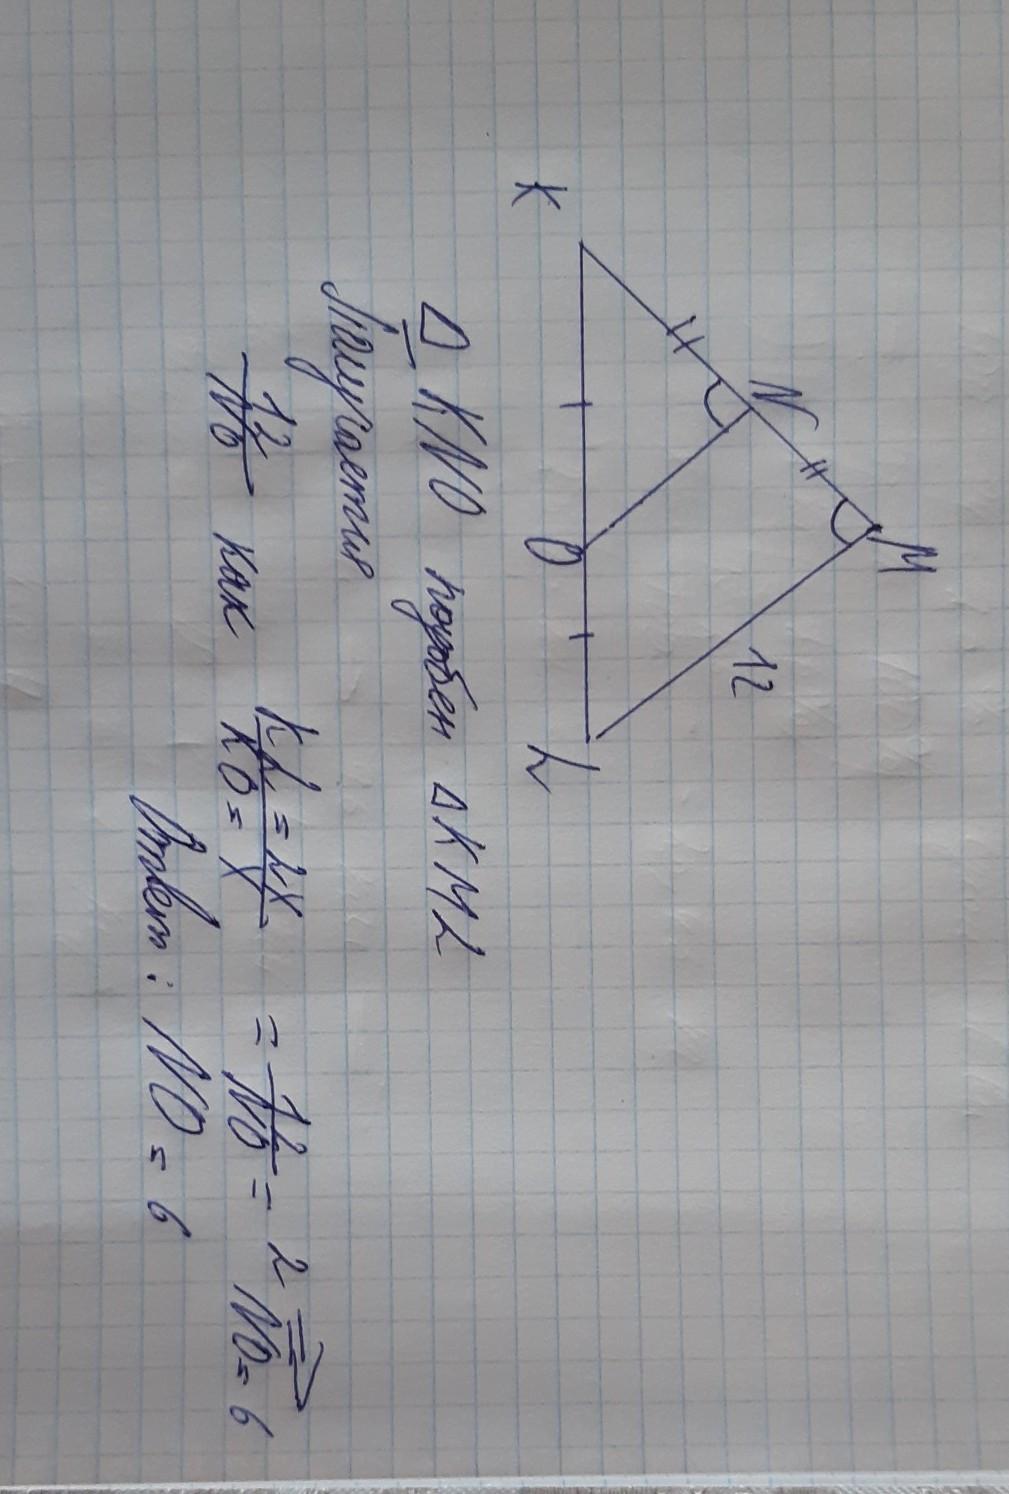 K
N
M
O
L
12
Δ KNO подобен Δ KML
Получается
12/NO как KL = 2X / KO = X = 12/NO = 2 ⇒ NO = 6
Ответ: NO = 6